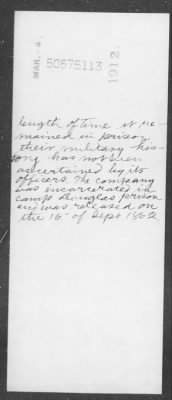 MAR. 4.
50575113
1912.
length of time it re-
mained in prison
their military his-
tory has not been
ascertained by its
officers. The company
was incarcerated in
camp Douglas prison
and was released on
the 16" of Sept 1862